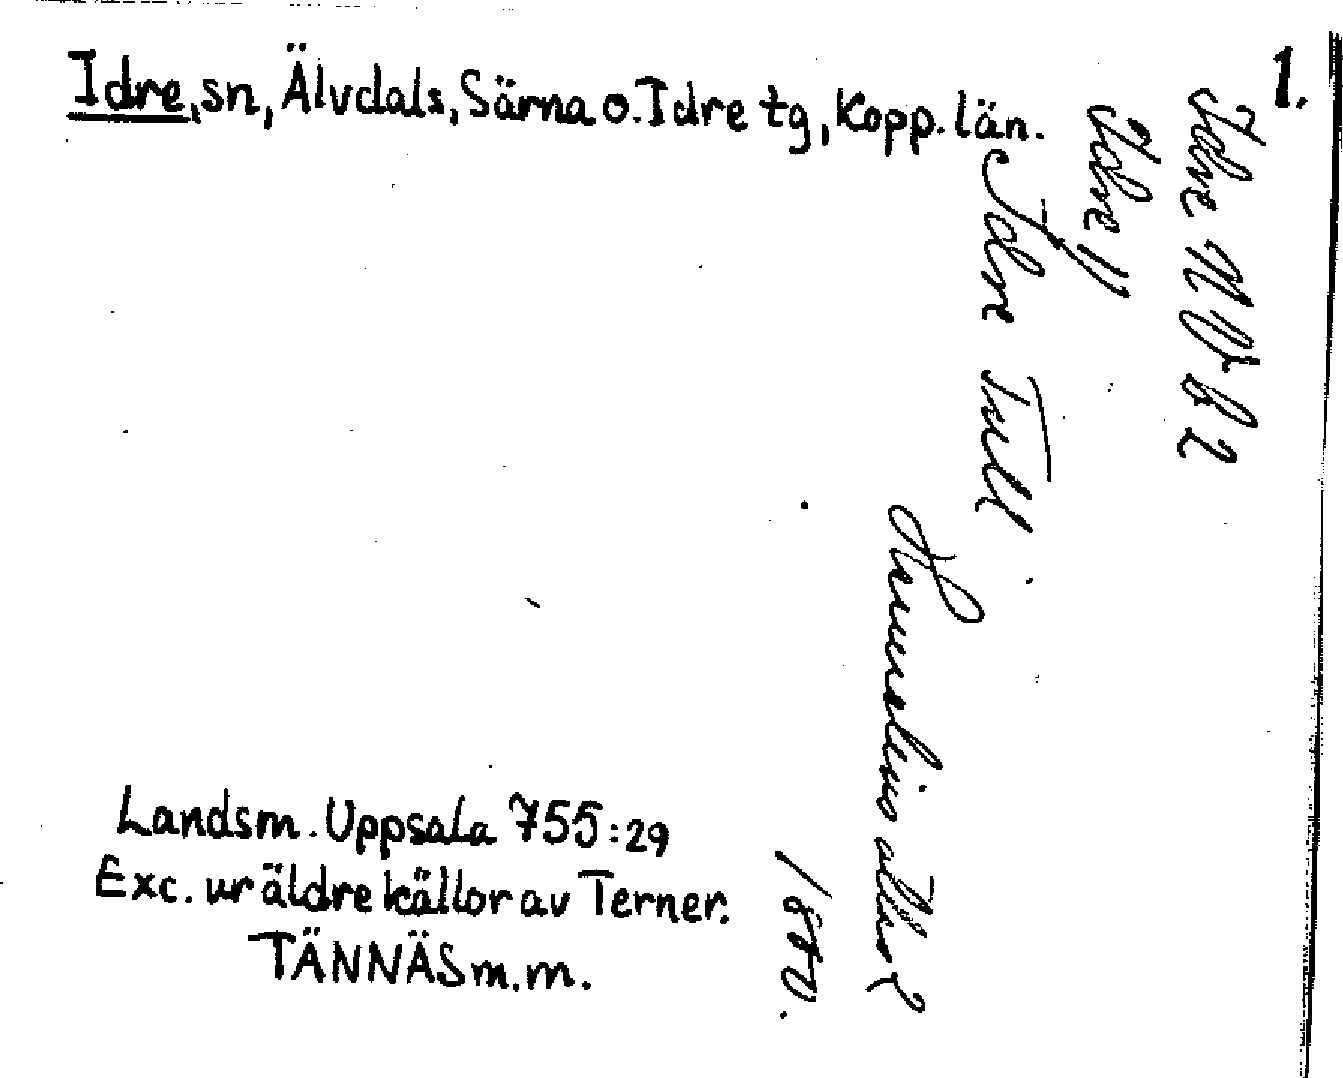 Idre, sn, Älvdals, Särna o. Idre tg, Kopp. län.
1.
Idre NV R 2
Idre
Idre Tull
Landsm. Uppsala 755:29
Exc. ur äldre källor av Terner.
TÄNNÄS m.m.